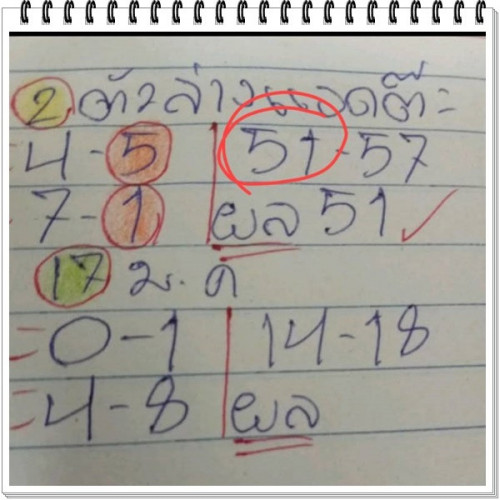 2 ตัวล่างแอดต๊ะ
4-5 51-57
7-1 ผล 51 ✓
17 ม.ค
=0-1 14-18
=4-8 ผล